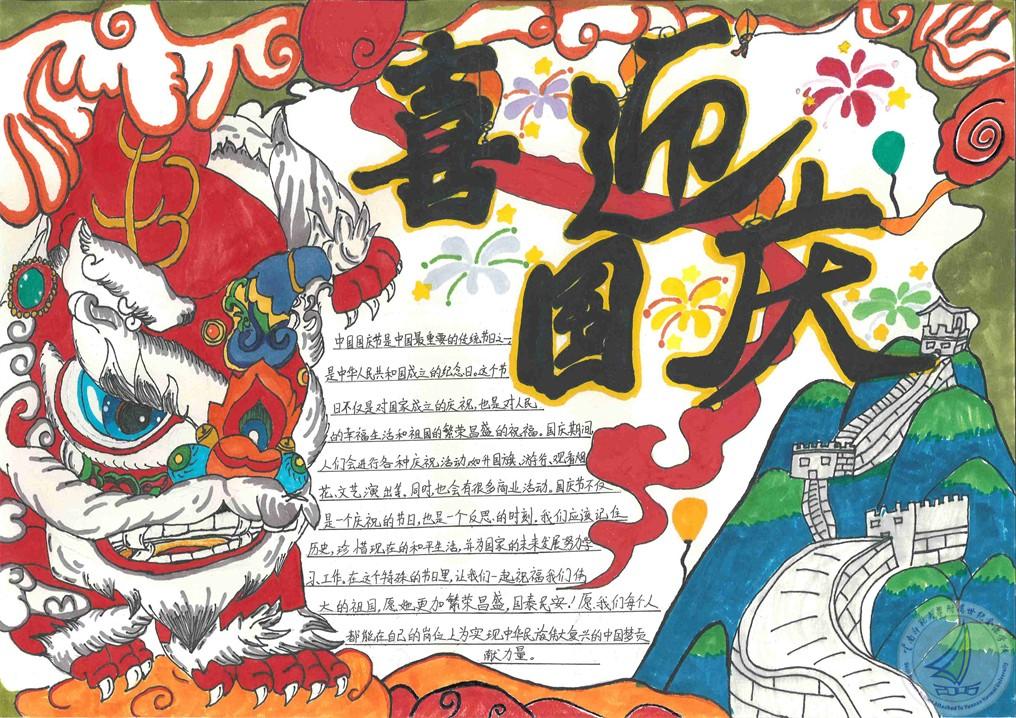 喜迎
国庆
中国国庆节是中国最重要的传统节日之一
是中华人民共和国成立的纪念日。这个节
日不仅是对国家成立的庆祝,也是对人民
的幸福生活和祖国的繁荣昌盛的祝福。国庆期间
人们会进行各种庆祝活动,如升国旗、游行、观看烟
花、文艺演出等。同时,也会有很多商业活动。国庆节不仅
是一个庆祝的节日,也是一个反思的时刻。我们应该记住
历史,珍惜现在的和平生活,并为国家的未来发展努力学
习工作。在这个特殊的节日里,让我们一起祝福我们伟
大的祖国,愿她更加繁荣昌盛,国泰民安!愿我们每个人
都能在自己的岗位上为实现中华民族伟大复兴的中国梦贡
献力量。